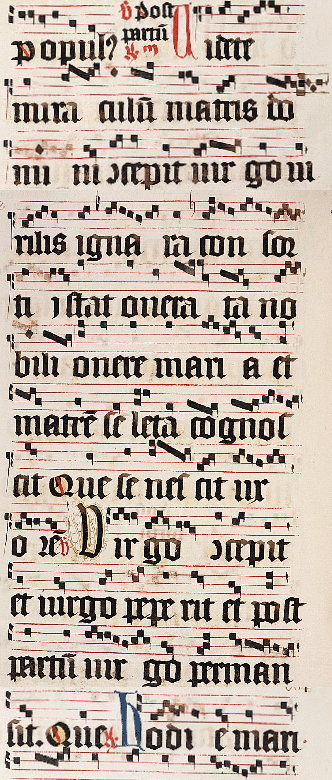 populꝯ ℣ post partū ℟ m Uidete
mira culū matris do
mi ni ɔcepit uir go ui
rilis igna ra con sor
ti j stat onera ta no
bili onere mari a et
matrē se leta cōgnos
cit Que se nes cit ux
o rē ℣ Uir go ɔcepit
et uirgo pepe rit et post
partū uir go perman
sit. Que ℟ Hodi e mari